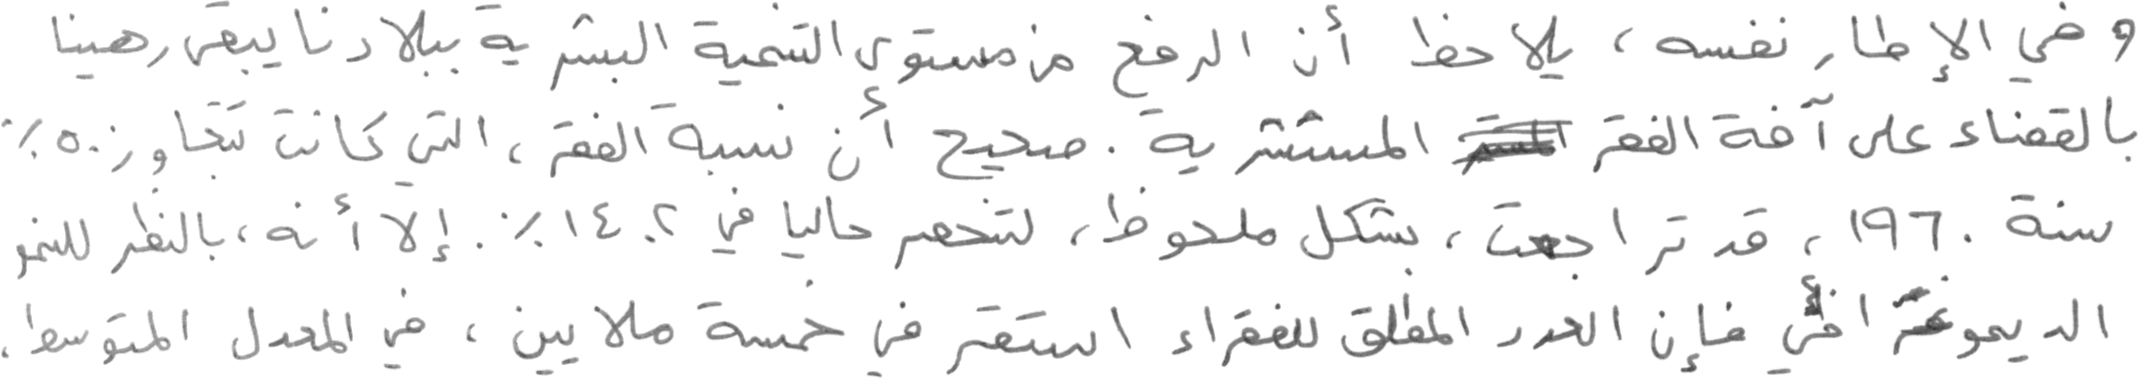 وفي الإطار نفسه، يلاحظ أن الرفع من مستوى التنمية البشرية ببلادنا يبقى رهينا
بالقضاء على آفة الفقر المستشرية. صحيح أن نسبة الفقر، التي كانت تتجاوز ٥٠٪
سنة ١٩٦٠، قد تراجعت، بشكل ملحوظ، لتنحصر حاليا في ١٤.٢٪. إلا أنه، بالنظر للنمو
الديموغرافي فإن العدد المطلق للفقراء استقر في خمسة ملايين، في المعدل المتوسط.